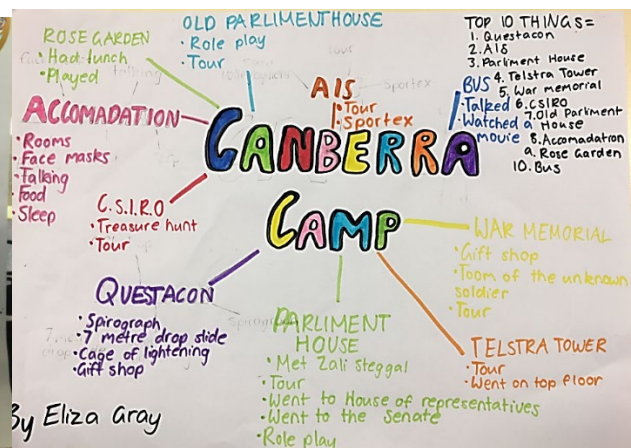 ROSE GARDEN
• Had lunch
• Played
OLD PARLIMENT HOUSE
• Role play
• Tour
AIS
• Tour
• Sportex
BUS
• Talked
• Watched a
movie
TOP 10 THINGS=
1. Questacon
2. AIS
3. Parliment House
4. Telstra Tower
5. War memorial
6. CSIRO
7. Old Parliment
House
8. Accomadation
9. Rose Garden
10. Bus
ACCOMADATION
• Rooms
• Face masks
• Talking
• Food
• Sleep
CANBERRA
CAMP
C.S.I.R.O
• Treasure hunt
• Tour
WAR MEMORIAL
• Gift shop
• Toom of the unknown
soldier
• Tour
QUESTACON
• Spirograph
• 7 metre drop slide
• Cage of lightening
• Gift shop
PARLIMENT
HOUSE
• Met Zali steggal
• Tour
• Went to House of representatives
• Went to the Senate
• Role play
TELSTRA TOWER
• Tour
• Went on top floor
By Eliza Gray